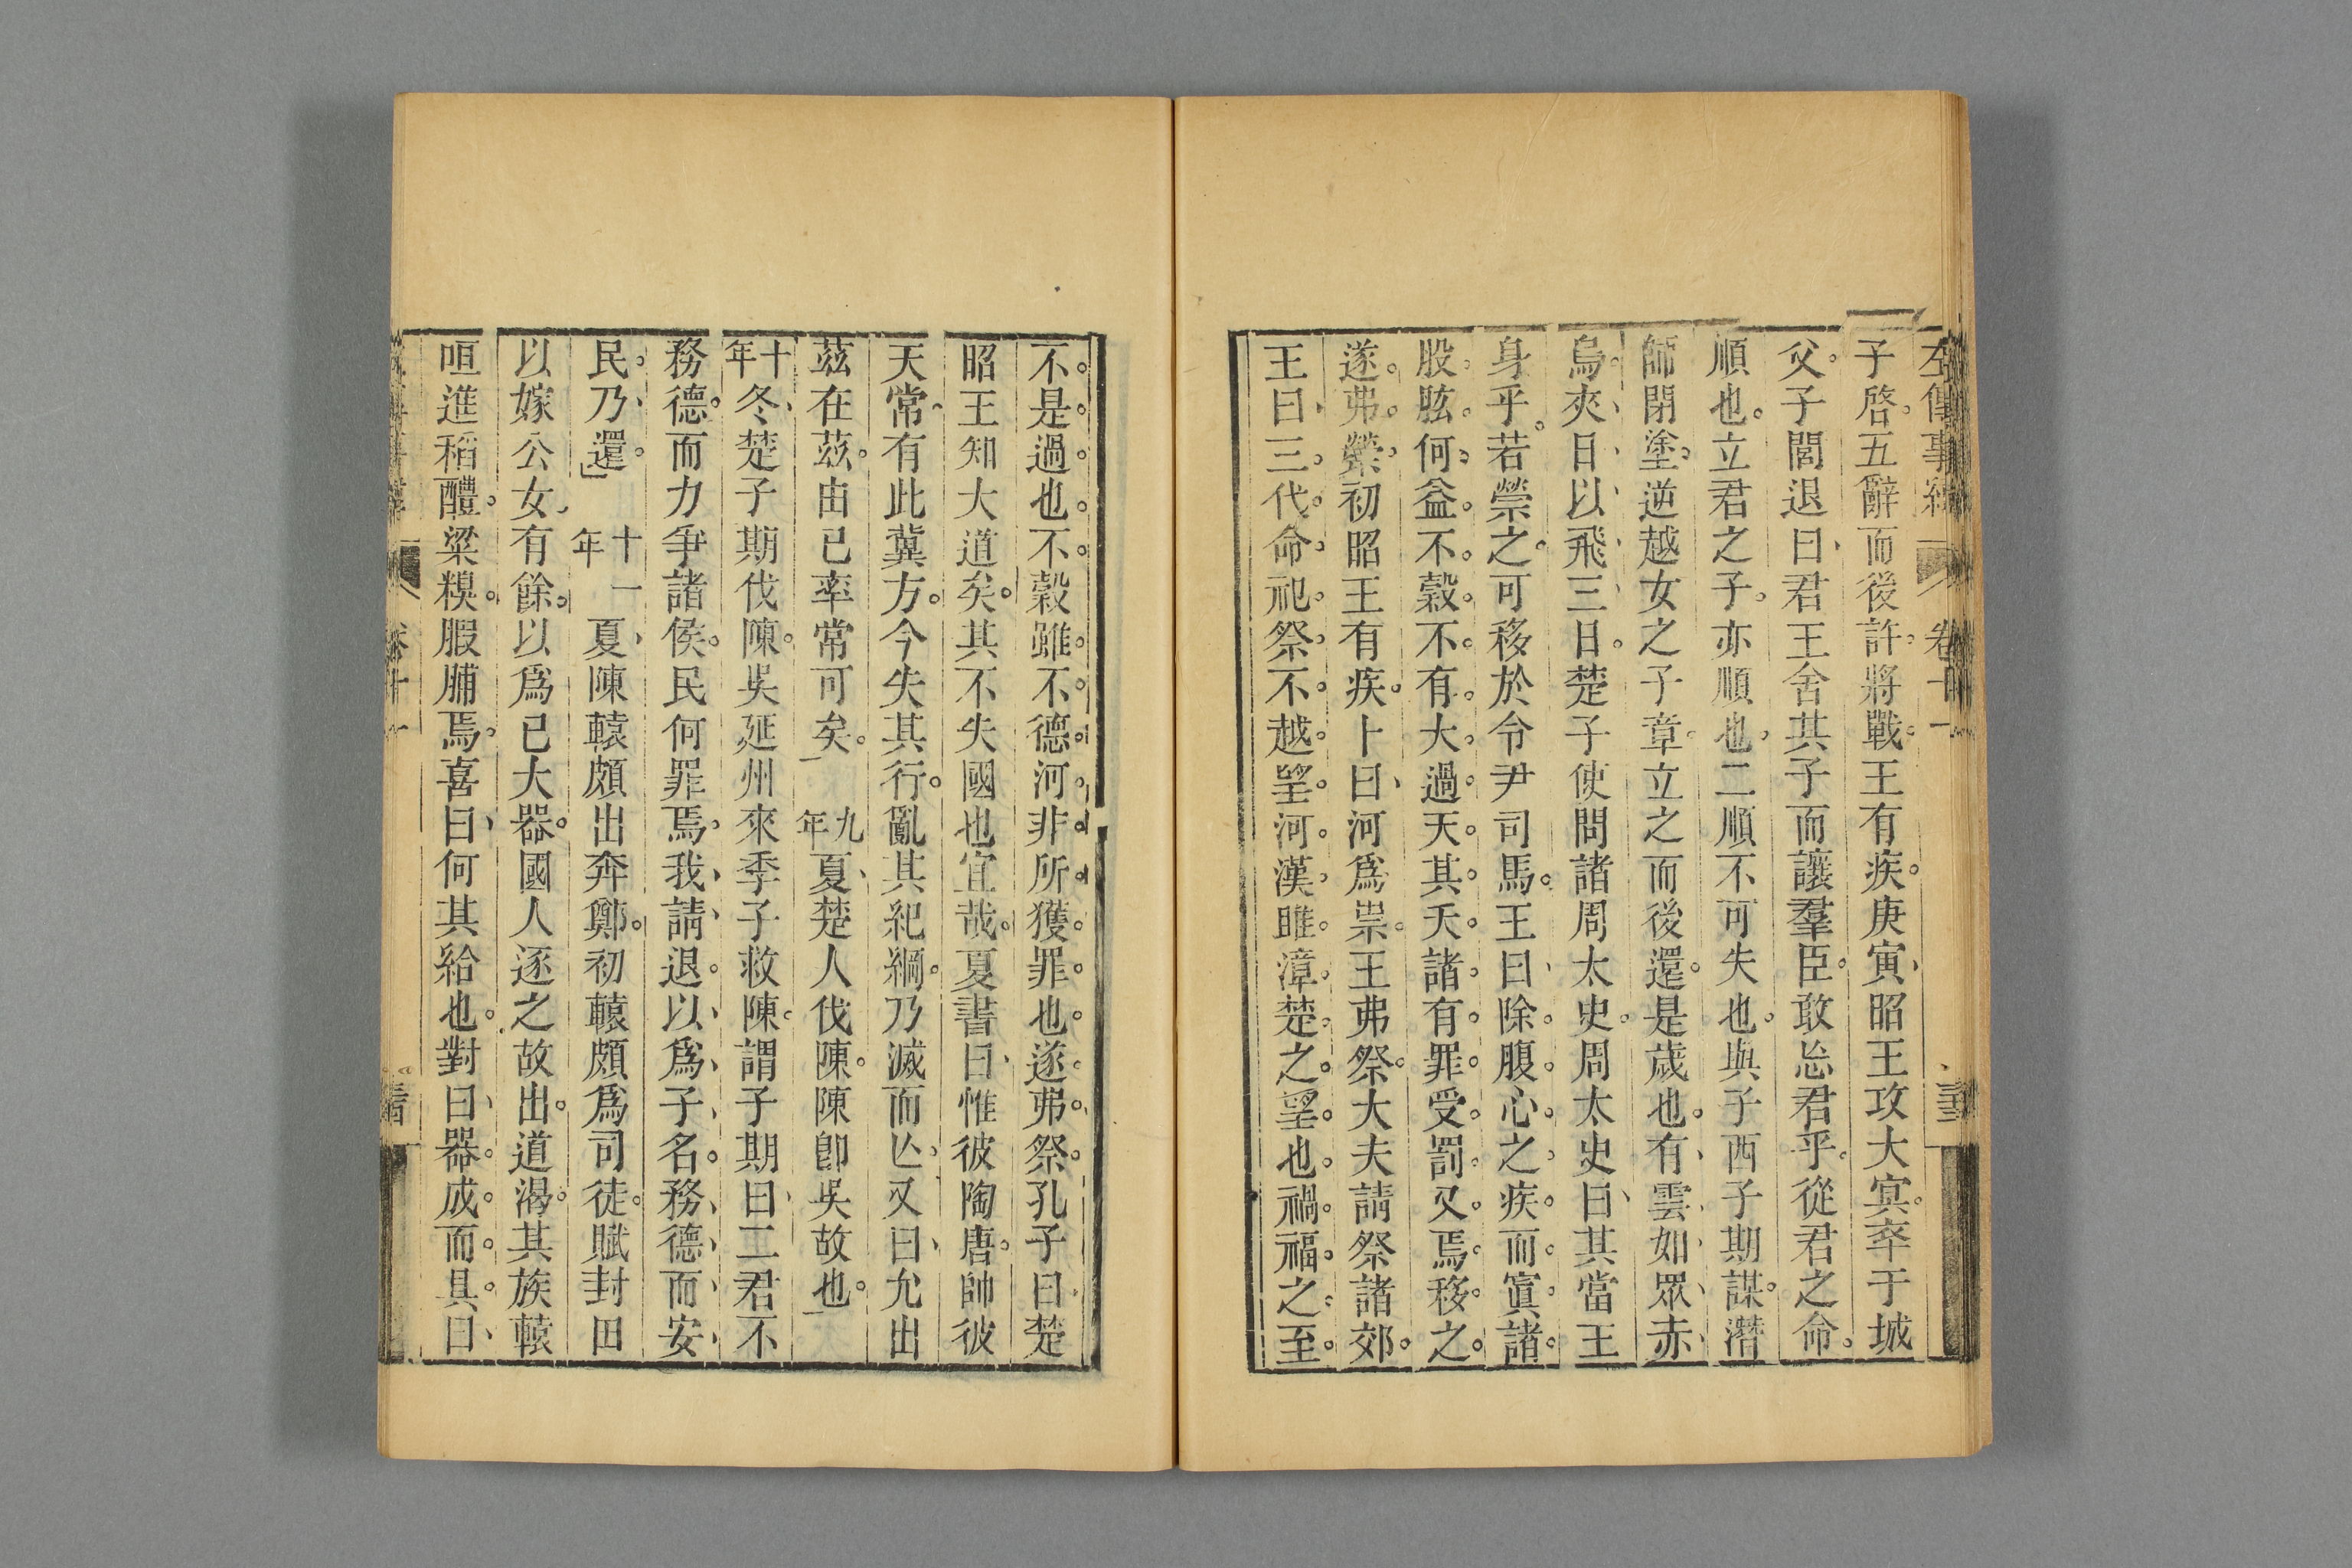 左傳事緯 卷十一
子啓五辭而後許將戰王有疾庚寅昭王攻大冥卒于城
父子閭退曰君王舍其子而讓羣臣敢忘君乎從君之命
順也立君之子亦順也二順不可失也與子西子期謀潛
師閉塗逆越女之子章立之而後還是歲也有雲如眾赤
烏夾日以飛三日楚子使問諸周太史周太史曰其當王
身乎若禜之可移於令尹司馬王曰除腹心之疾而寘諸
股肱何益不穀不有大過天其夭諸有罪受罰又焉移之
遂弗禜初昭王有疾卜曰河爲祟王弗祭大夫請祭諸郊
王曰三代命祀祭不越望河漢雎漳楚之望也禍福之至
不是過也不穀雖不德河非所獲罪也遂弗祭孔子曰楚
昭王知大道矣其不失國也宜哉夏書曰惟彼陶唐帥彼
天常有此冀方今失其行亂其紀綱乃滅而亾又曰允出
茲在茲由已率常可矣 九年夏楚人伐陳陳卽吳故也
十年冬楚子期伐陳吳延州來季子救陳謂子期曰二君不
務德而力爭諸侯民何罪焉我請退以爲子名務德而安
民乃還 十一年夏陳轅頗出奔鄭初轅頗爲司徒賦封田
以嫁公女有餘以爲已大器國人逐之故出道渴其族轅
咺進稻醴粱糗腶脯焉喜曰何其給也對曰器成而具曰
卷十一